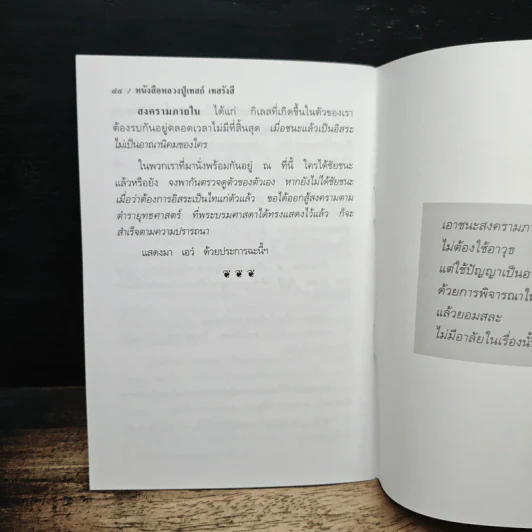 ๔๔ / หนังสือหลวงปู่เทสก์ เทสรังสี
สงครามภายใน ได้แก่ กิเลสที่เกิดขึ้นในตัวของเรา
ต้องรบกันอยู่ตลอดเวลาไม่มีที่สิ้นสุด เมื่อชนะแล้วเป็นอิสระ
ไม่เป็นอาณานิคมของใคร
ในพวกเราที่มานั่งพร้อมกันอยู่ ณ ที่นี้ ใครได้ชัยชนะ
แล้วหรือยัง จงพากันตรวจดูตัวของตัวเอง หากยังไม่ได้ชัยชนะ
เมื่อว่าต้องการอิสระเป็นไทแก่ตัวแล้ว ขอได้ออกสู้สงครามตาม
ตำรายุทธศาสตร์ ที่พระบรมศาสดาได้ทรงแสดงไว้แล้ว ก็จะ
สำเร็จตามความปรารถนา
แสดงมา เอวํ ด้วยประการฉะนี้ฯ
เอาชนะสงครามภา
ไม่ต้องใช้อาวุธ
แต่ใช้ปัญญาเป็นอา
ด้วยการพิจารณาให
แล้วยอมสละ
ไม่มีอาลัยในเรื่องนั้